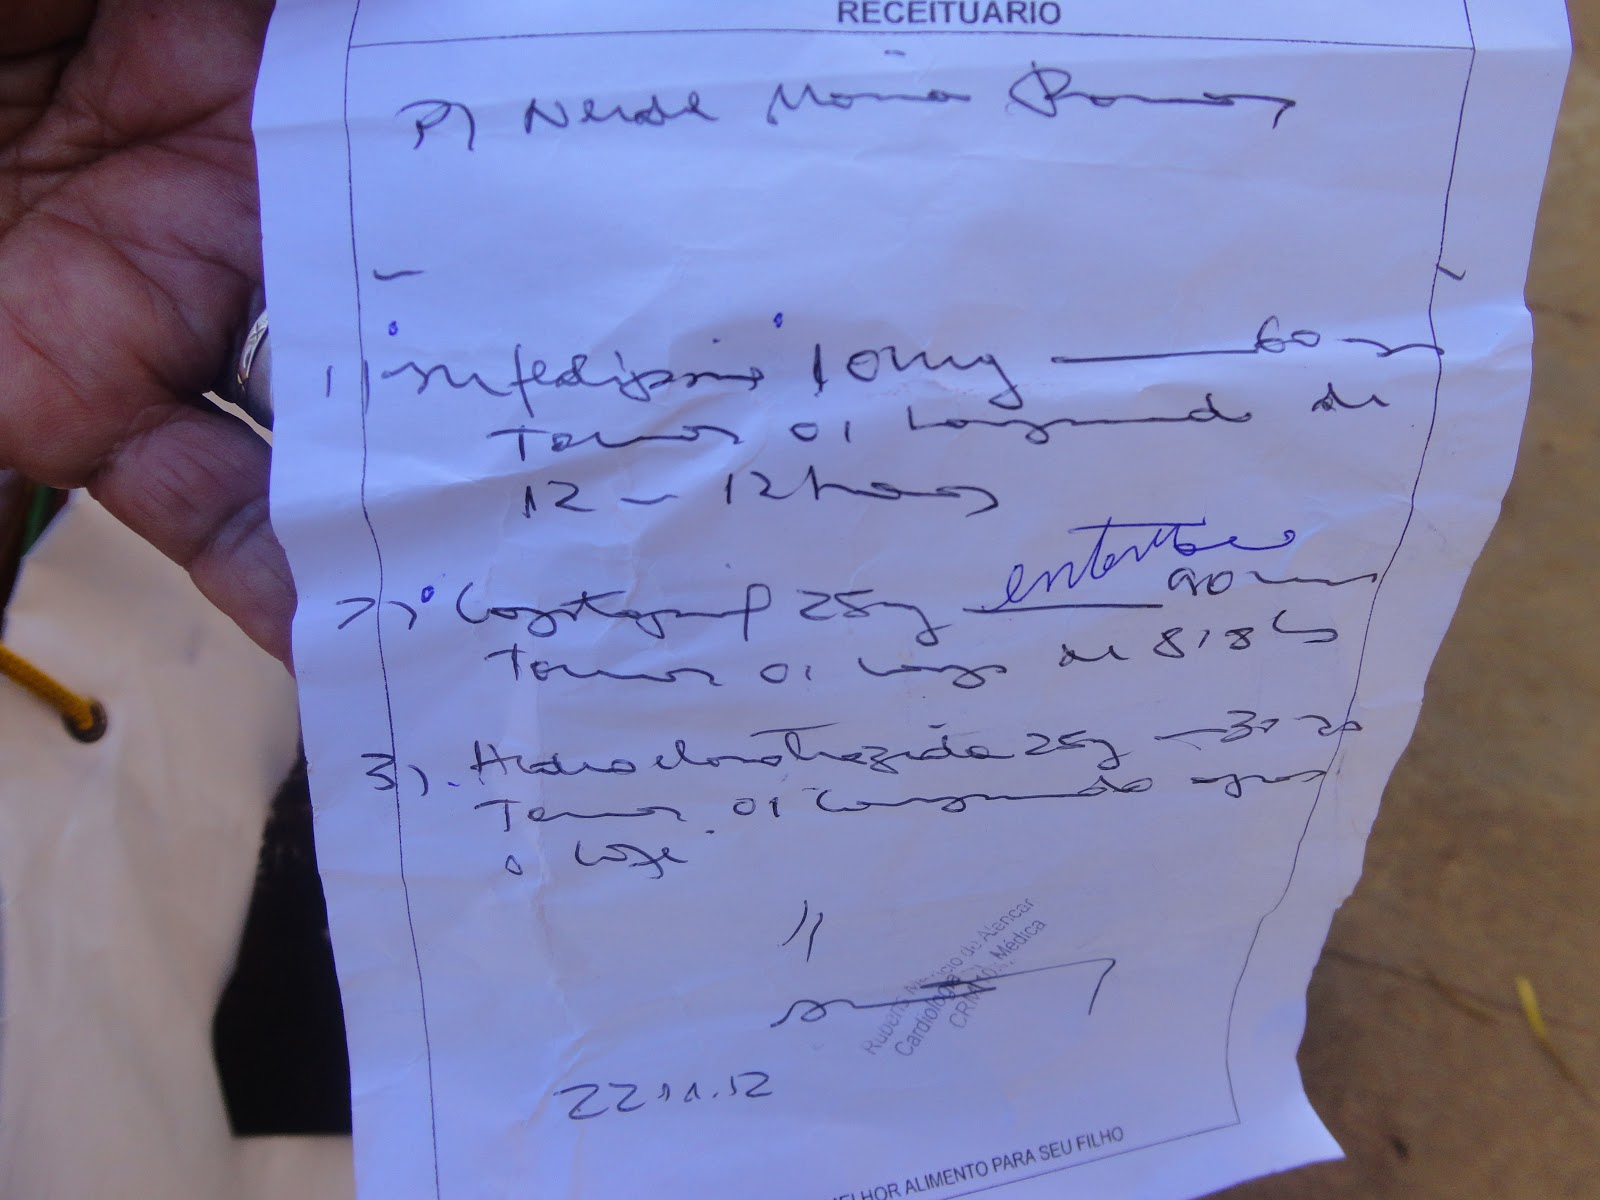 RECEITUÁRIO
P/ Neide Maria Ramos
1) Nifedipina 10mg — 60
Tomar 01 comprimido de
12 - 12 horas
2) Captopril 25mg — 90
Tomar 01 comp de 8/8hs
3). Hidroclorotiazida 25mg — 30
Tomar 01 comprimido após
o café
de Alencar
Cardiologia Médica
CRM
22.11.12
MELHOR ALIMENTO PARA SEU FILHO